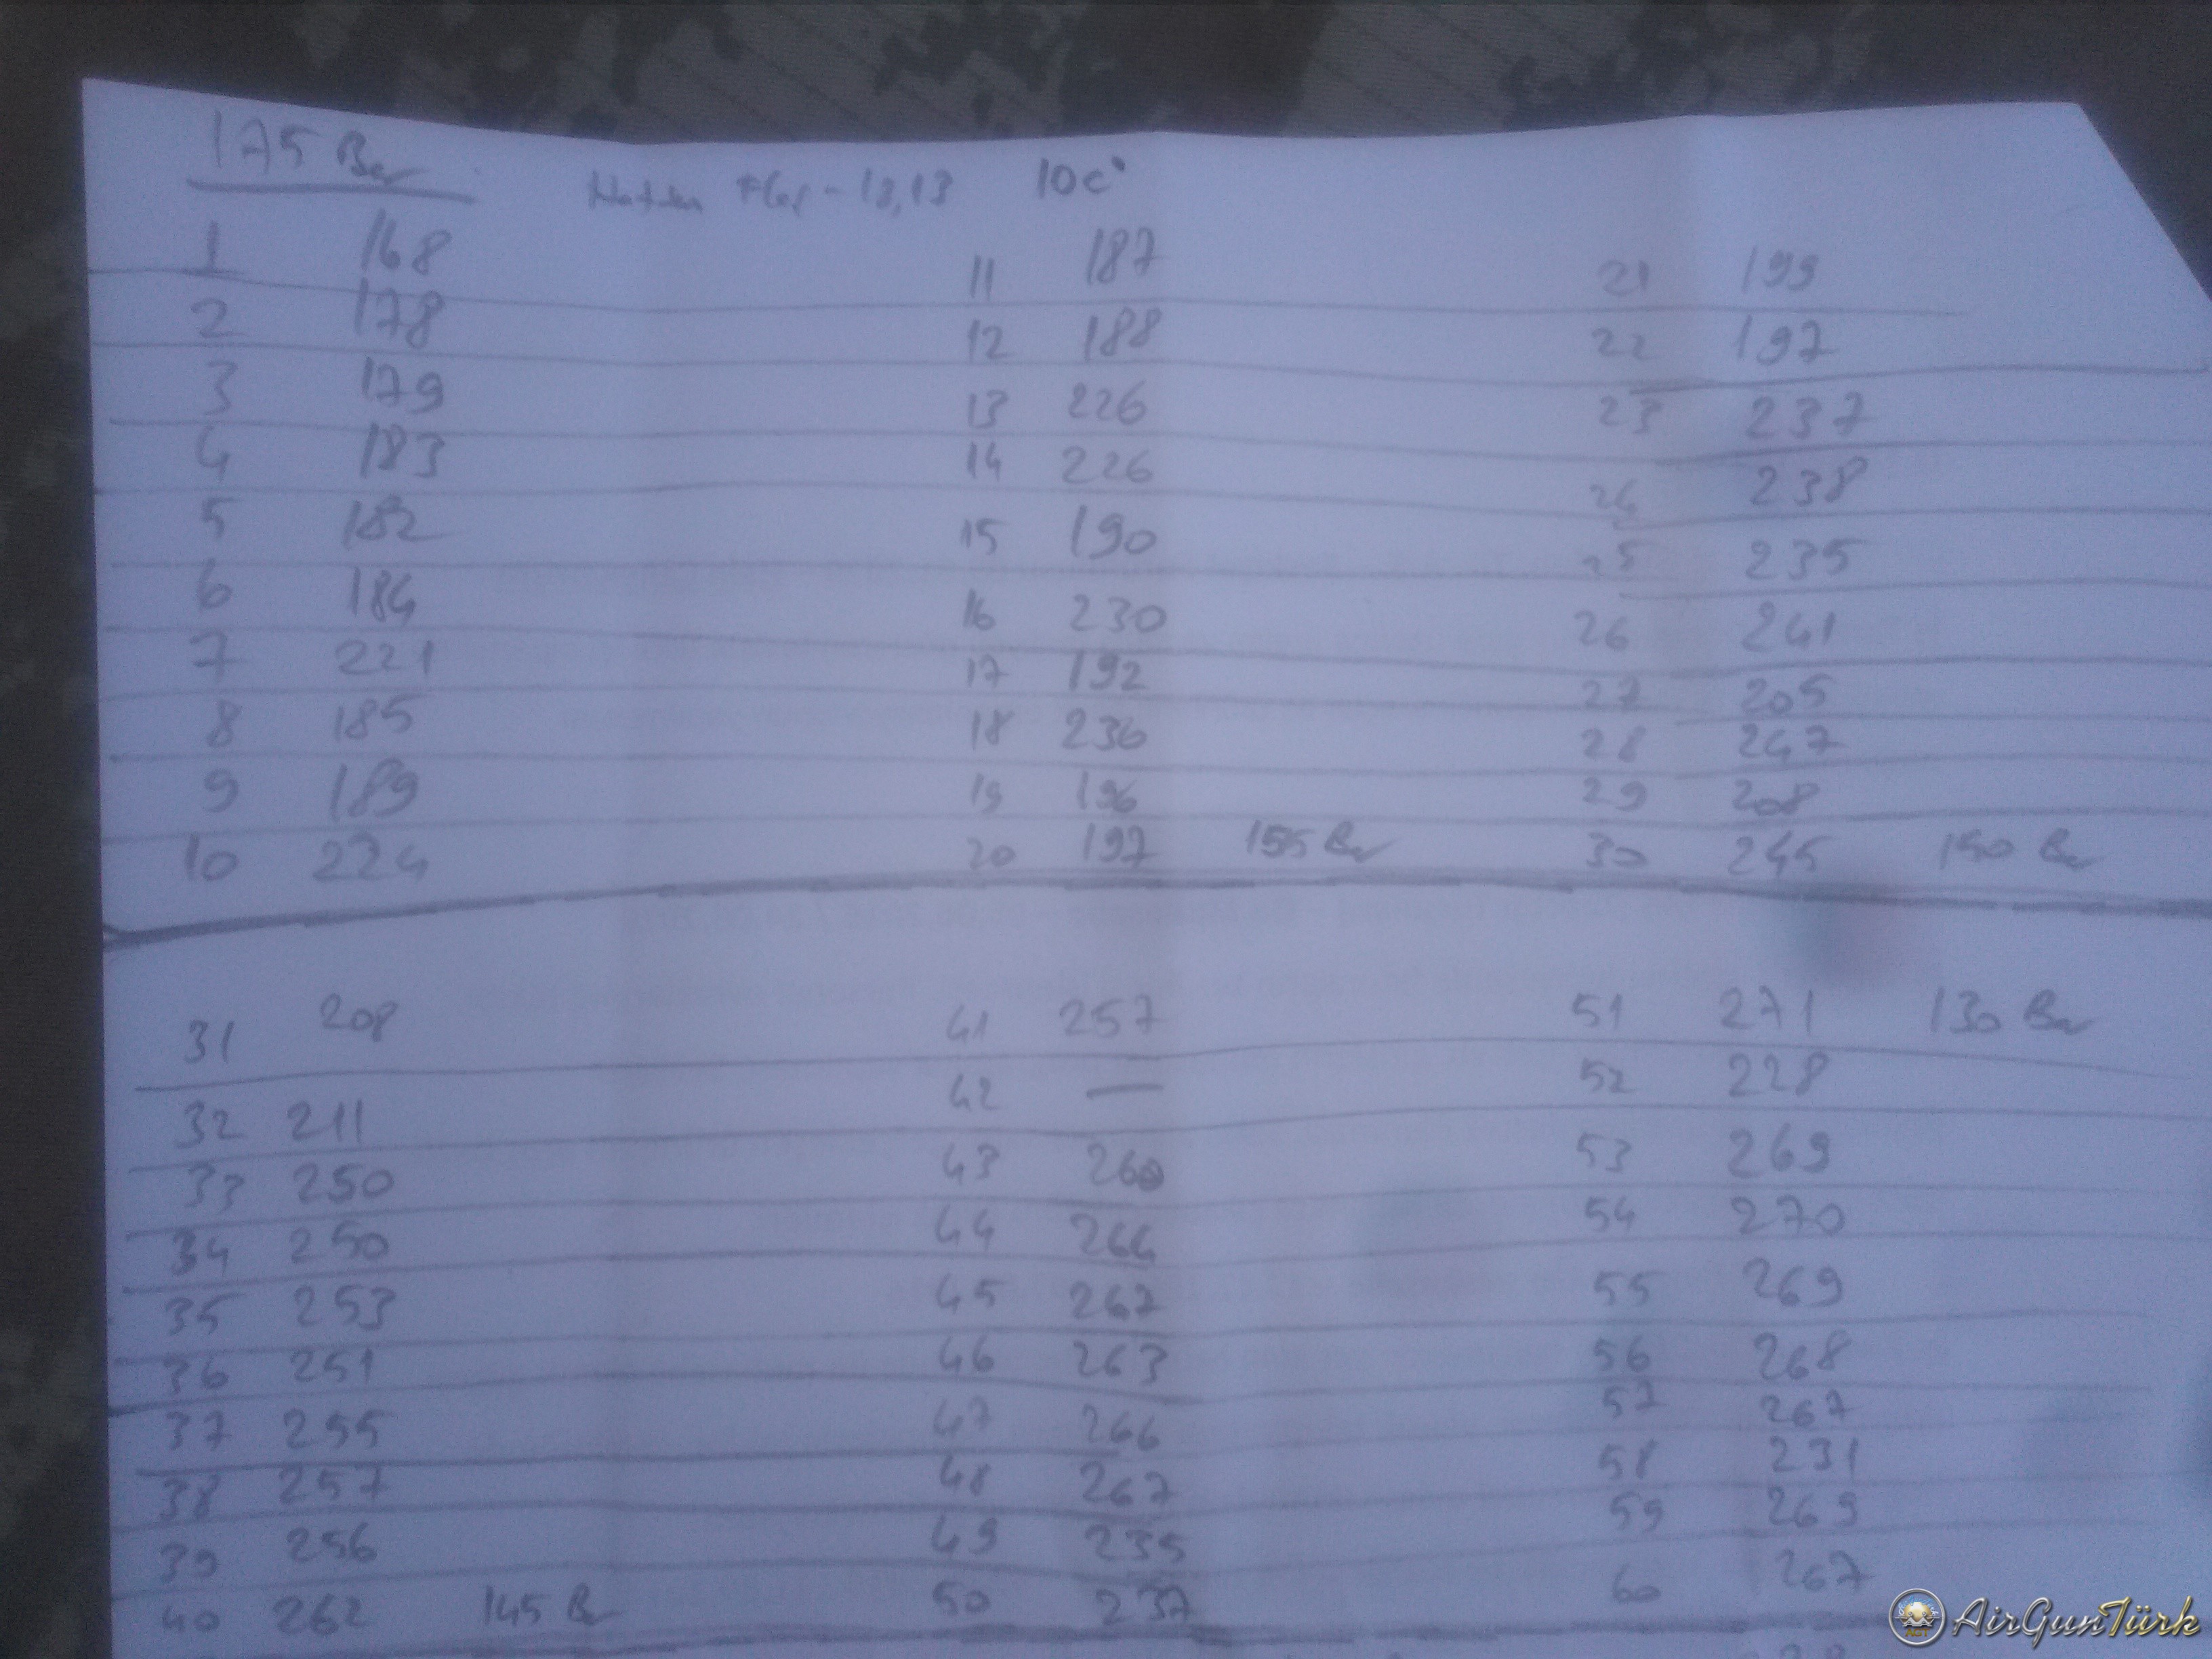 175 Bar
18,13 10c°
1 168 11 187 21 199
2 178 12 188 22 197
3 179 13 226 23 237
4 183 14 226 24 238
5 182 15 190 25 235
6 184 16 230 26 241
7 221 17 192 27 205
8 185 18 236 28 247
9 189 19 196 29 208
10 224 20 197 155 Bar 30 245 150 Bar
31 208 41 257 51 271 130 Bar
32 211 42 — 52 228
33 250 43 260 53 269
34 250 44 264 54 270
35 253 45 267 55 269
36 251 46 263 56 268
37 255 47 266 57 267
38 257 48 267 58 231
39 256 49 235 59 269
40 262 145 Bar 50 237 60 267
AirGunTürk